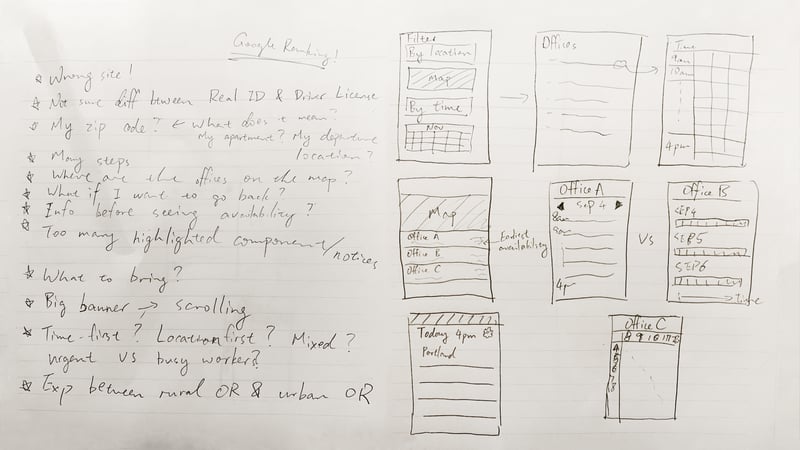 Google Ranking!
Wrong site!
Not sure diff between Real ID & Driver License
My zip code? ← What does it mean?
My apartment? My departure
location?
Many steps
Where are the offices on the map?
What if I want to go back?
Info before seeing availability?
Too many highlighted component/notices
What to bring?
Big banner → scrolling
Time-first? Location first? Mixed?
urgent vs busy worker?
Exp between rural OR & urban OR
Filter
By location
Map
By time
Nov
Offices
Time
9am
10am
4pm
Map
Office A
Office B
Office C
Earliest
availability
Office A
◀ SEP 4 ▶
8am
9am
4pm
VS
Office B
SEP4
SEP5
SEP6
→ Time
Today 4pm
Portland
Office C
8 9 10 11 12
4
5
6
7
8